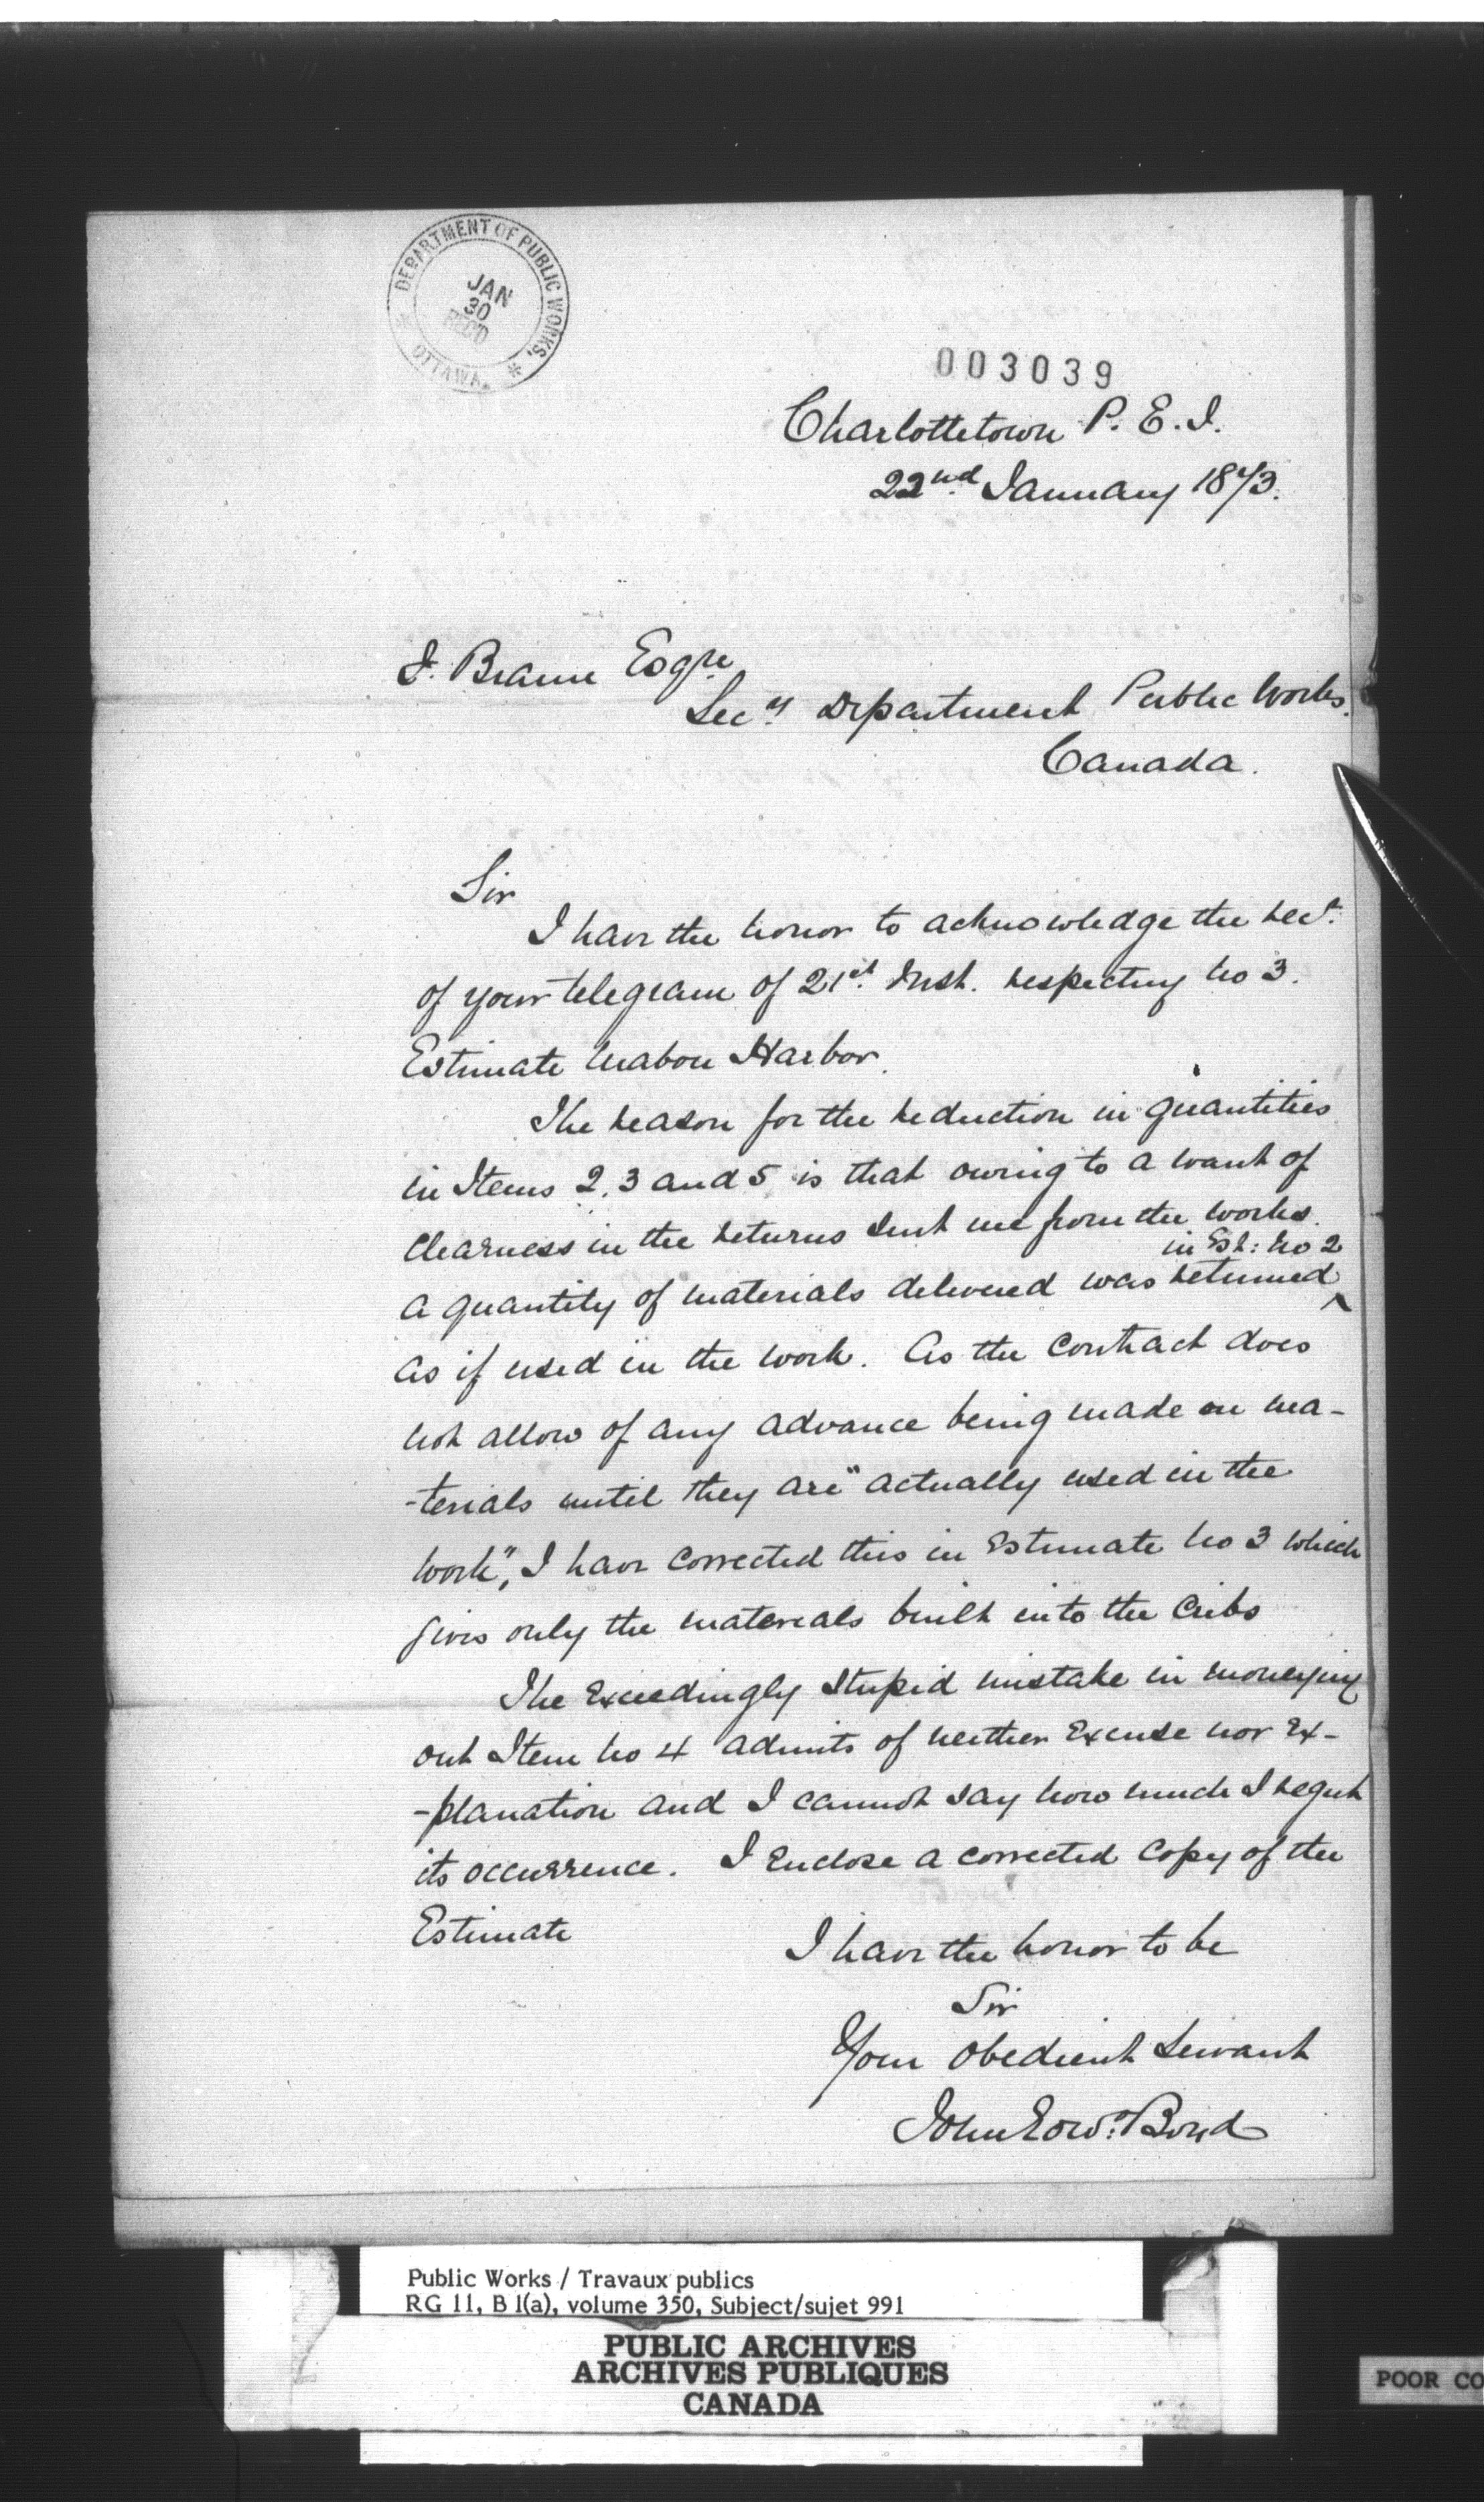 DEPARTMENT OF PUBLIC WORKS,
JAN
30
REC'D
OTTAWA
003039
Charlottetown P. E. I.
22nd January 1873.
F. Braun Esqre
Secy Department Public Works.
Canada.
Sir
I have the honor to acknowledge the rect.
of your telegram of 21st. Inst. respecting No 3.
Estimate Mabou Harbor.
The reason for the reduction in quantities
in Items 2, 3 and 5 is that owing to a want of
clearness in the returns sent me from the works.
in Est: No 2
a quantity of materials delivered was returned ^
as if used in the work. As the contract does
not allow of any advance being made on ma-
-terials until they are "actually used in the
work", I have corrected this in Estimate No 3 which
gives only the materials built into the cribs
The exceedingly stupid mistake in moneying
out Item No 4 admits of neither excuse nor ex-
-planation and I cannot say how much I regret
its occurrence. I enclose a corrected copy of the
Estimate
I have the honor to be
Sir
Your obedient servant
John Edwd. Boyd
Public Works / Travaux publics
RG 11, B 1(a), volume 350, Subject/sujet 991
PUBLIC ARCHIVES
ARCHIVES PUBLIQUES
CANADA
POOR CO